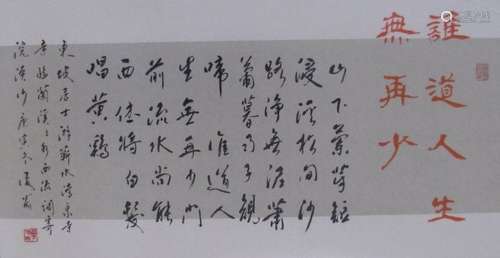 誰道人生
無再少
山下蘭芽短
浸溪松間沙
路淨無泥蕭
蕭暮雨子規
啼 誰道人
生無再少門
前流水尚能
西休將白髮
唱黃鷄
東坡居士游蘄水清泉寺
寺臨蘭溪〻水西流調寄
浣溪沙庚寅冬